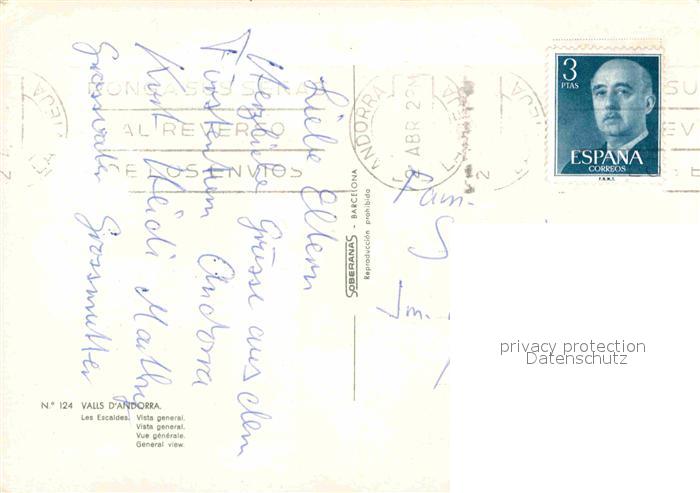 Liebe Eltern
Herzliche Grüsse aus dem
Fürstentum Andorra
Kurt Heidi
Grossvater Grossmutter
Nº 124 VALLS D'ANDORRA.
Les Escaldes. Vista general.
Vista general.
Vue générale.
General view.
SOBERANAS - BARCELONA
Reproducción prohibida
PONGA SUS SEÑAS
AL REVERSO
DE LOS ENVIOS
ANDORRA LA VIEJA
ABR
Fam.
3
PTAS
ESPAÑA
CORREOS
F.N.M.T.
privacy protection
Datenschutz